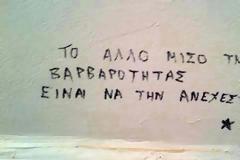 ΤΟ ΑΛΛΟ ΜΙΣΟ ΤΗ
ΒΑΡΒΑΡΟΤΗΤΑΣ
ΕΙΝΑΙ ΝΑ ΤΗΝ ΑΝΕΧΕΣ